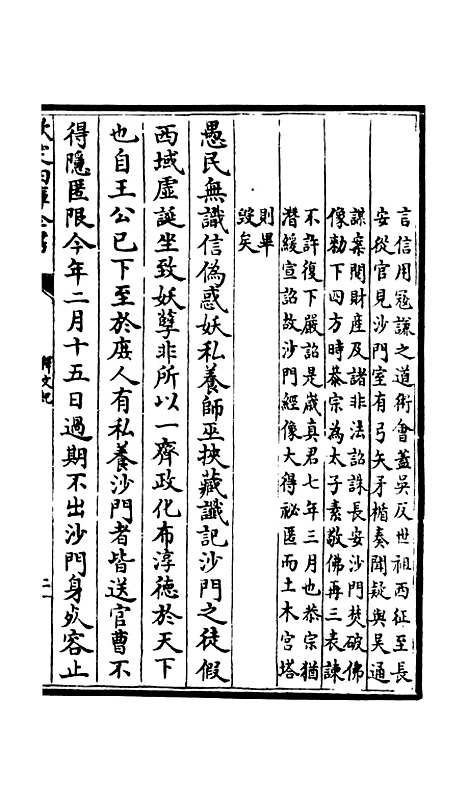 言信用冦謙之道術會蓋吳反世祖西征至長
安從官見沙門室有弓矢矛楯奏聞疑與吳通
謀案閱財産及諸非法詔誅長安沙門焚破佛
像勅下四方時恭宗為太子素敬佛再三表諫
不許復下嚴詔是歲真君七年三月也恭宗猶
潛緩宣詔故沙門經像大得祕匿而土木宮塔
則畢
毀矣
愚民無識信偽惑妖私養師巫挾藏讖記沙門之徒假
西域虛誕坐致妖孽非所以一齊政化布淳徳於天下
也自王公已下至於庶人有私養沙門者皆送官曹不
得隱匿限今年二月十五日過期不出沙門身死容止
欽定四庫全書
釋文紀